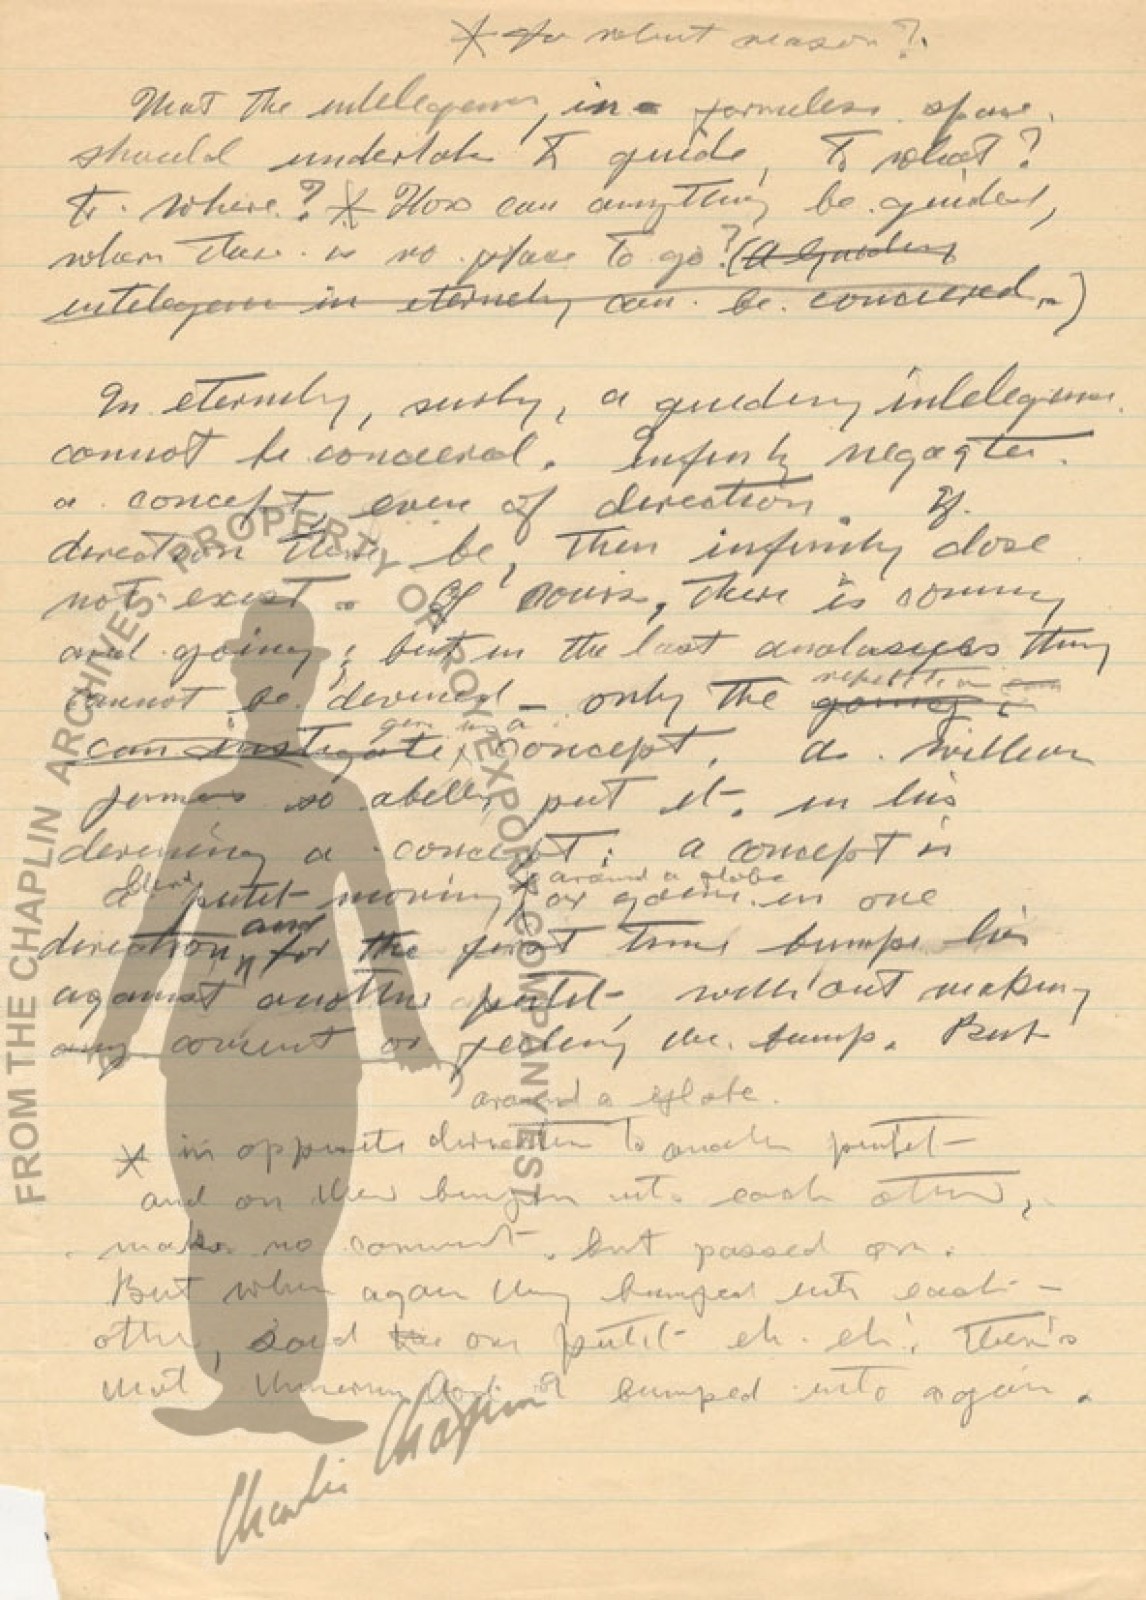 * for what reason?
That the intelegence, in a formless space.
should undertake to guide, to what?
to. where? * How can anything be guided,
when there is no place to go? (A guiding
intelegence in eternety can be concieved.)
In eternety, surly, a guiding intelegence
cannot be concieved. Infinity negates
a concept, even of direction. If
direction there be, then infinity dose
not exist. Of course, there is coming
and going; but in the last analasyes they
cannot be devined - only the going
repetition
can instigate, concept. As William
a
James so abelly put it. in his
devening a concept: a concept is
a blind polit moving * or going in one
around a globe
direction, and for the first time bumps his
against another polit, without making
any coment or feeling the bump. But
around a globe.
* in opposite direction to another polit
and on their bumping into each other,
makes no comment, but passed on.
But when again they bumped into each
other, said the one polit eh. eh! There's
that I bumped into again.
FROM THE CHAPLIN ARCHIVES. PROPERTY OF ROY EXPORT COMPANY EST
Charlie Chaplin